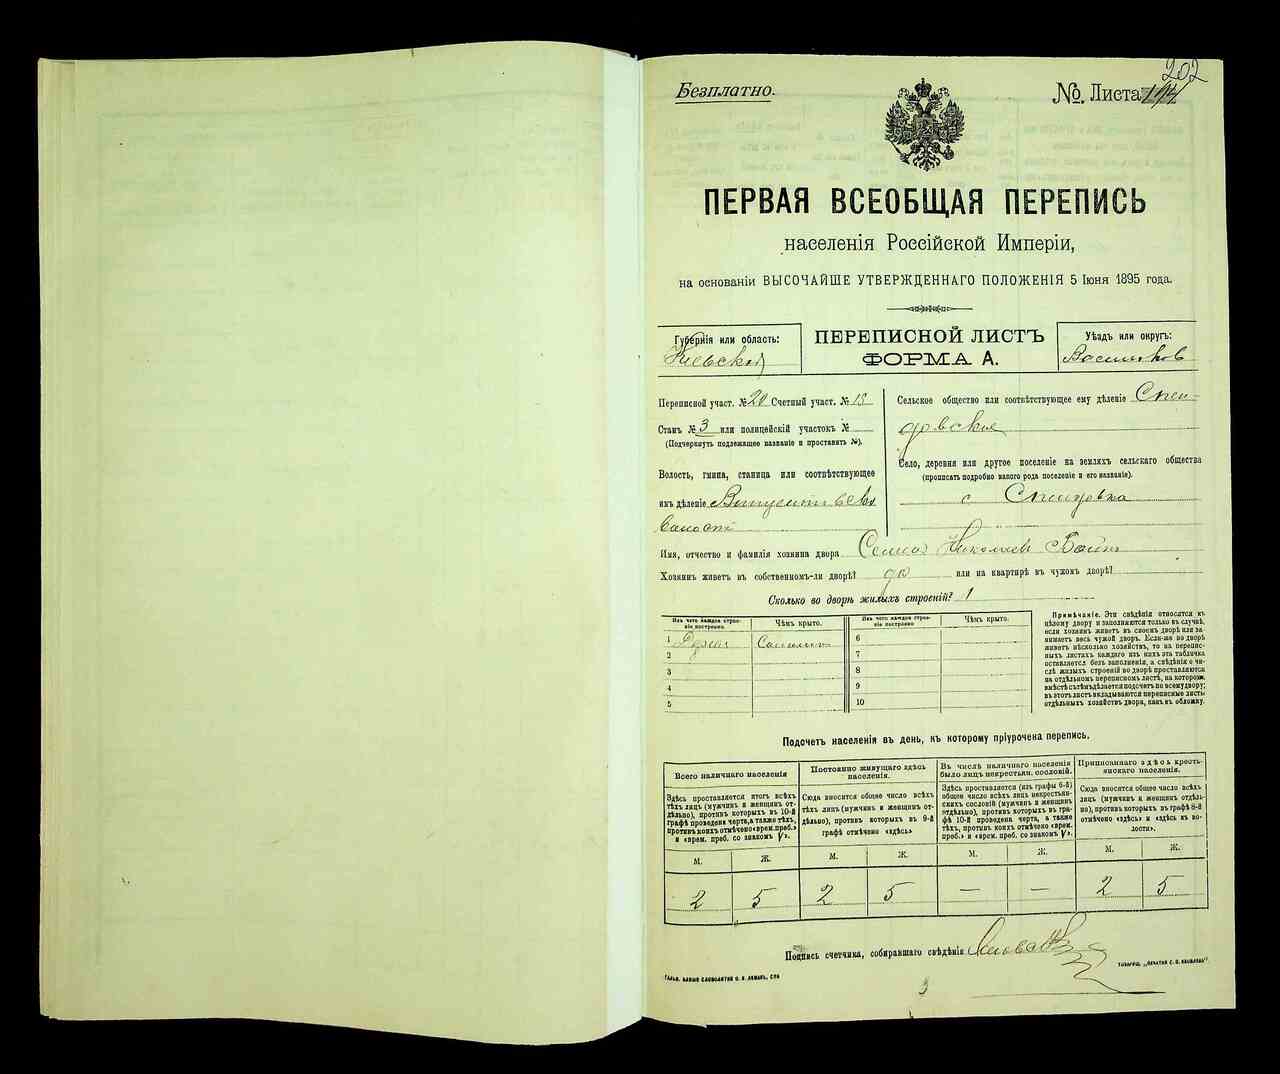 202
Безплатно.
№ Листа
ПЕРВАЯ ВСЕОБЩАЯ ПЕРЕПИСЬ
населенія Россійской Имперіи,
на основаніи ВЫСОЧАЙШЕ УТВЕРЖДЕННАГО ПОЛОЖЕНІЯ 5 Іюня 1895 года.
Губернія или область:
Кіевская
ПЕРЕПИСНОЙ ЛИСТЪ
ФОРМА А.
Уѣздъ или округъ:
Васильков
Переписной участ. № 20 Счетный участ. № 15
Станъ № 3 или полицейскій участокъ №
(Подчеркнуть подлежащее названіе и проставить №).
Волость, гмина, станица или соотвѣтствующее
имъ дѣленіе
Сельское общество или соотвѣтствующее ему дѣленіе
Село, деревня или другое поселеніе на земляхъ сельскаго общества
(прописать подробно какого рода поселеніе и его названіе).
с
Имя, отчество и фамилія хозяина двора
Хозяинъ живетъ въ собственномъ-ли дворѣ? да или на квартирѣ въ чужомъ дворѣ?
Сколько во дворѣ жилыхъ строеній? 1
Изъ чего каждое строеніе построено. Чѣмъ крыто. Изъ чего каждое строеніе построено Чѣмъ крыто.
1 6
2 7
3 8
4 9
5 10
Примѣчаніе. Эти свѣдѣнія относятся къ
цѣлому двору и заполняются только въ случаѣ,
если хозяинъ живетъ въ своемъ дворѣ или занимаетъ
весь чужой дворъ. Если-же во дворѣ
живетъ нѣсколько хозяйствъ, то на переписныхъ
листахъ каждаго изъ нихъ эта табличка
оставляется безъ заполненія, а свѣдѣнія о числѣ
жилыхъ строеній во дворѣ проставляются
на отдѣльномъ переписномъ листѣ, на которомъ
вмѣстѣ съ тѣмъ дѣлается подсчетъ по всему двору;
въ этотъ листъ вкладываются переписные листы
отдѣльныхъ хозяйствъ двора, какъ въ обложку.
Подсчетъ населенія въ день, къ которому пріурочена перепись.
Всего наличнаго населенія
Здѣсь проставляется итогъ всѣхъ
тѣхъ лицъ (мужчинъ и женщинъ отдѣльно),
противъ которыхъ въ 10-й
графѣ проведена черта, а также тѣхъ,
противъ коихъ отмѣчено «врем. преб.»
и «врем. преб. со знакомъ V».
Постоянно живущаго здѣсь
населенія.
Сюда вносится общее число всѣхъ
тѣхъ лицъ (мужчинъ и женщинъ отдѣльно),
противъ которыхъ въ 9-й
графѣ отмѣчено «здѣсь»
Въ числѣ наличнаго населенія
было лицъ некрестьян. сословій.
Здѣсь проставляется (изъ графы 6-й)
общее число всѣхъ лицъ некрестьянскихъ
сословій (мужчинъ и женщинъ
отдѣльно), противъ которыхъ въ графѣ
10-й проведена черта, а также
тѣхъ, противъ коихъ отмѣчено «врем.
преб.» и «врем. преб. со знакомъ V».
Приписаннаго здѣсь крестьянскаго
населенія.
Сюда вносится общее число всѣхъ
лицъ (мужчинъ и женщинъ отдѣльно),
противъ которыхъ въ графѣ 8-й
отмѣчено «здѣсь» и «здѣсь въ волости».
М. Ж. М. Ж. М. Ж. М. Ж.
2 5 2 5 — — 2 5
Подпись счетчика, собиравшаго свѣдѣнія
3